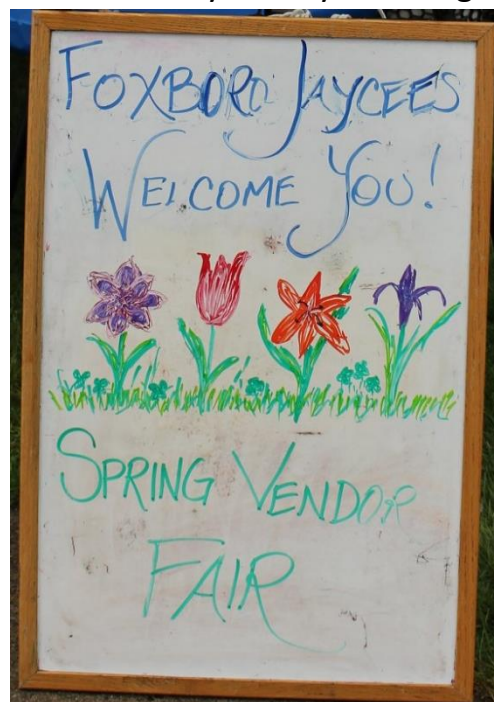 FOXBORO JAYCEES
WELCOME YOU!
SPRING VENDOR
FAIR